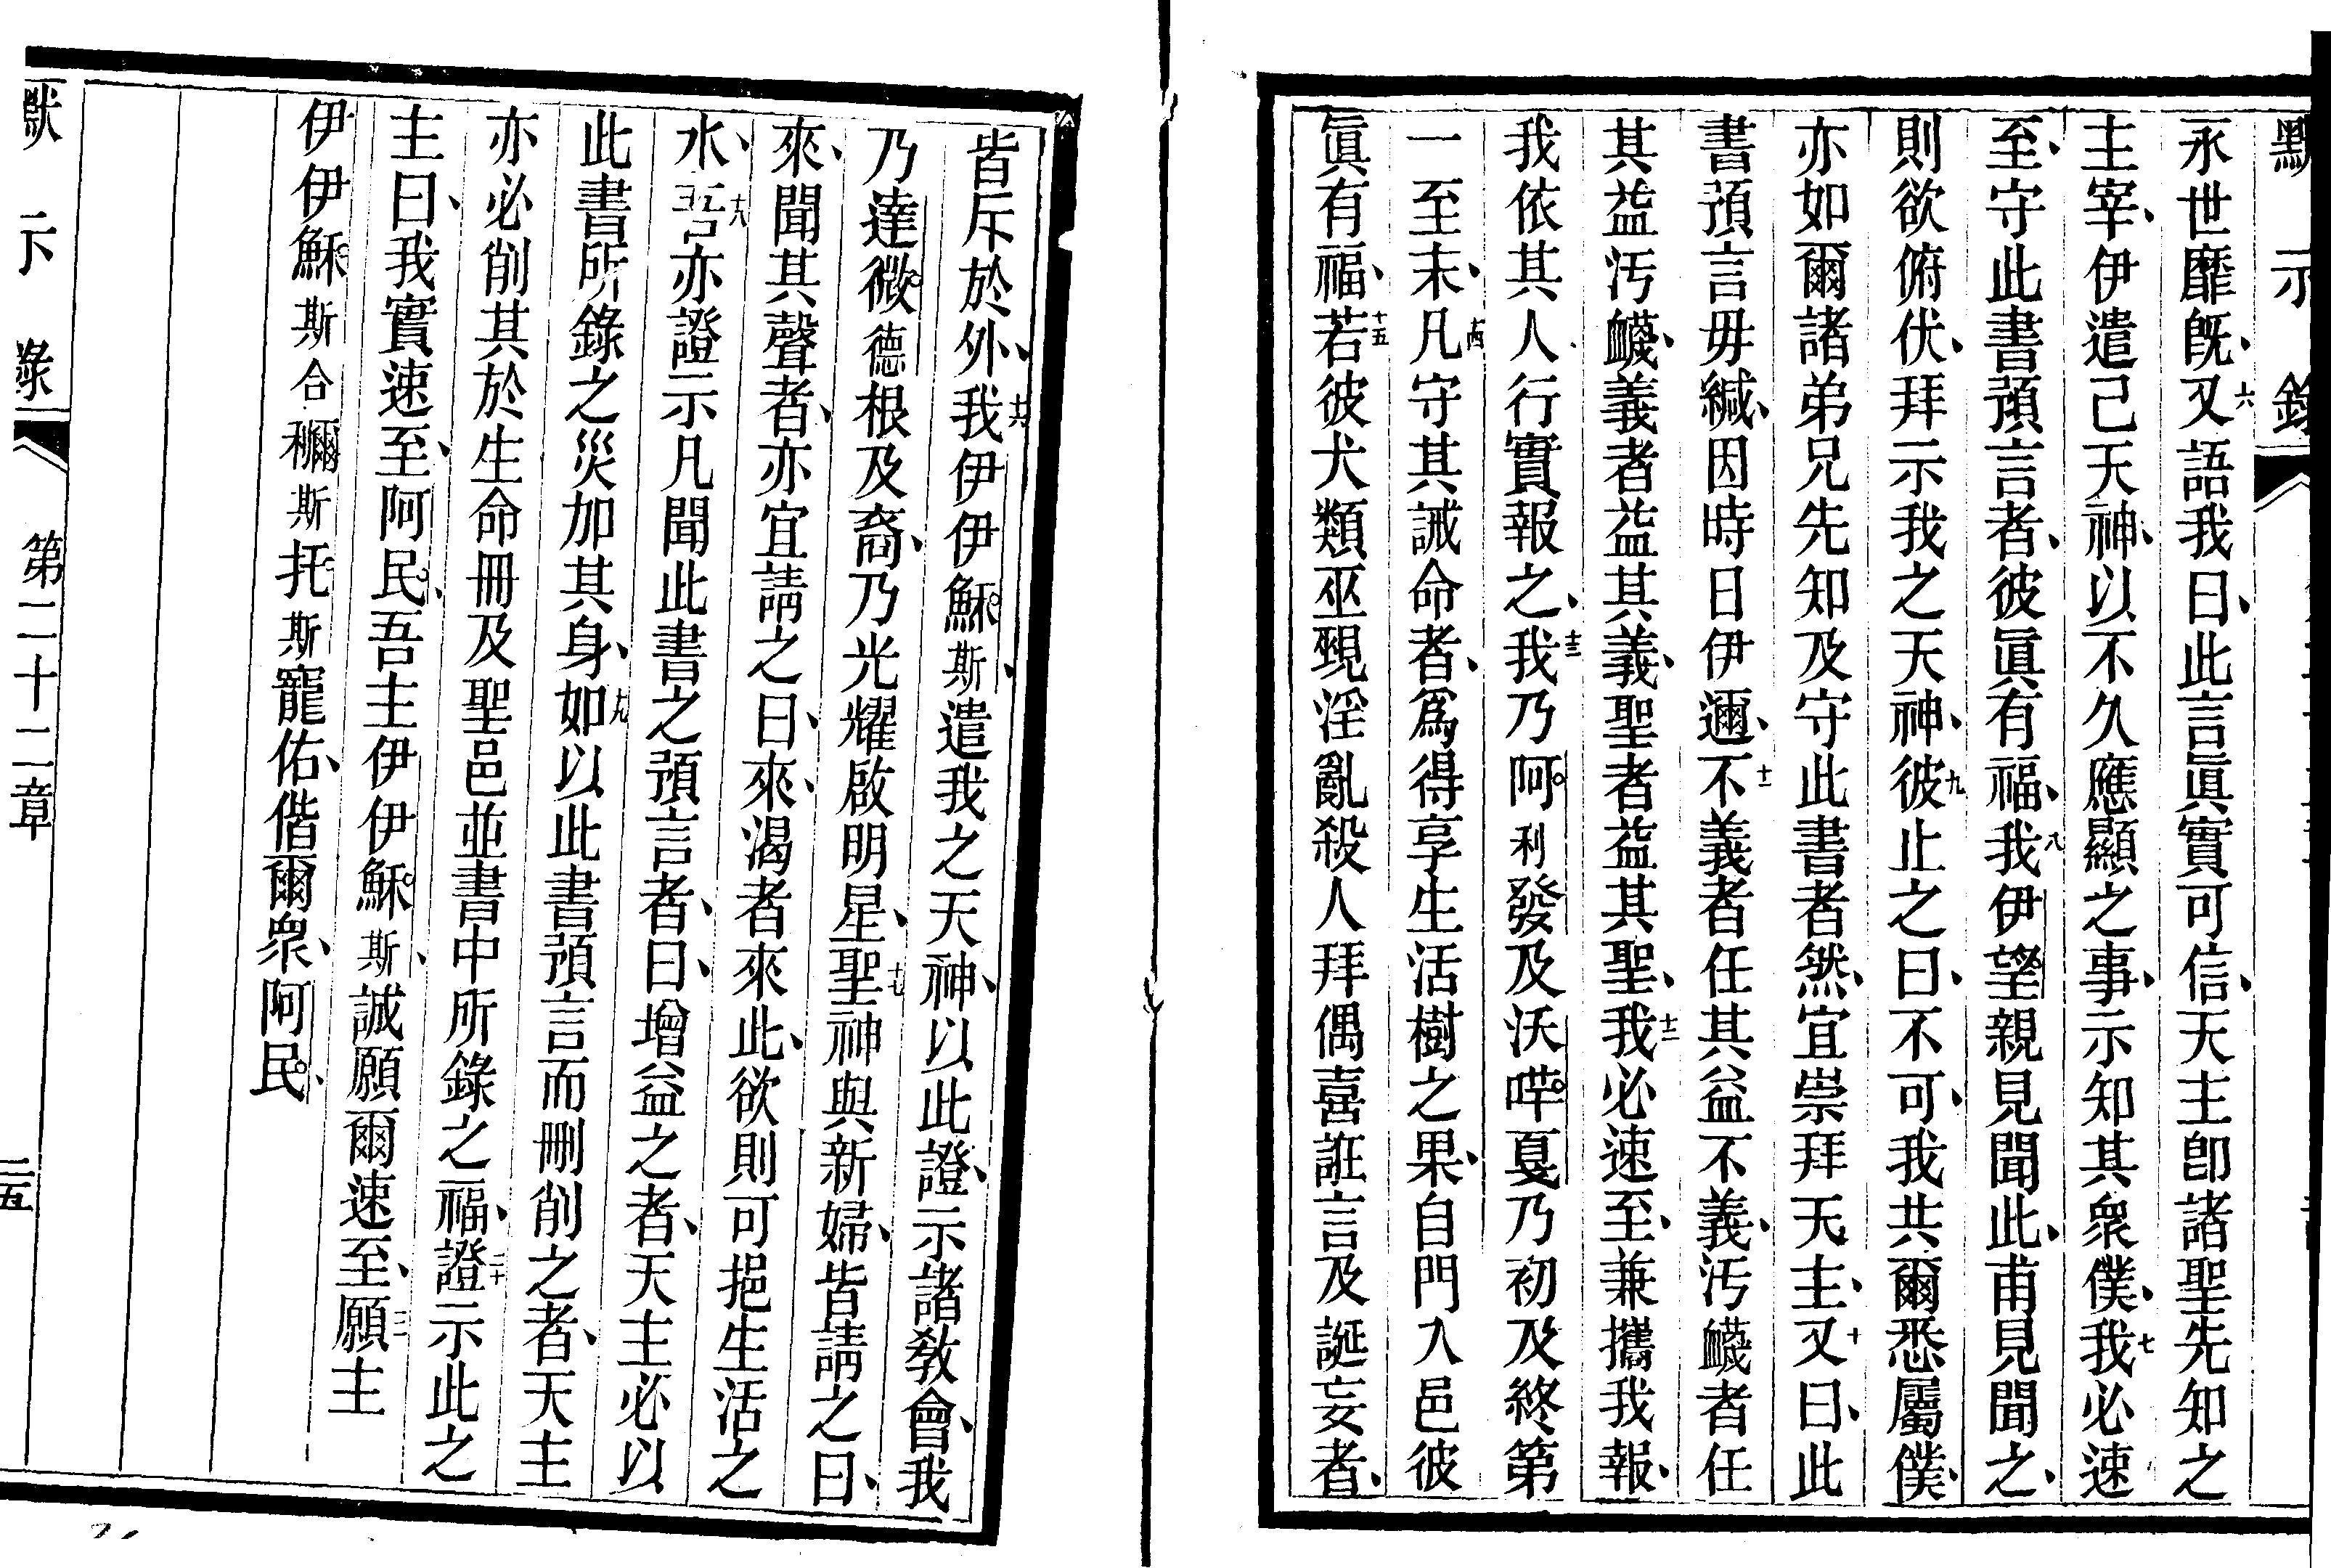 默示錄
永世靡旣、六又語我曰、此言眞實可信、天主卽諸聖先知之
主宰、伊遣己天神、以不久應顯之事、示知其衆僕、七我必速
至、守此書預言者、彼眞有福、八我伊望親見聞此、甫見聞之、
則欲俯伏、拜示我之天神、九彼止之曰、不可、我共爾悉屬僕、
亦如爾諸弟兄先知及守此書者然、宜崇拜天主、十又曰、此
書預言毋緘、因時日伊邇、十一不義者任其益不義、汚衊者任
其益汚衊、義者益其義、聖者益其聖、十二我必速至、兼攜我報、
我依其人、行實報之、十三我乃阿利發及沃咩戛乃初及終第
一至末、十四凡守其誡命者、爲得享生活樹之果、自門入邑彼
眞有福、十五若彼犬類巫覡淫亂殺人拜偶喜誑言及誕妄者、
皆斥於外、十六我伊伊穌斯、遣我之天神、以此證、示諸敎會、我
乃達微德根及裔、乃光耀啟明星、十七聖神與新婦、皆請之曰、
來、聞其聲者、亦宜請之曰、來、渴者來此、欲則可挹生活之
水、十八吾亦證示凡聞此書之預言者、曰、增益之者、天主必以
此書所錄之災加其身、十九如以此書預言而刪削之者、天主
亦必削其於生命冊及聖邑並書中所錄之福、二十證示此之
主曰、我實速至、阿民、吾主伊伊穌斯、誠願爾速至、二一願主
伊伊穌斯合利爾斯托斯寵佑、偕爾衆、阿民、
默示錄 第二十二章 三五